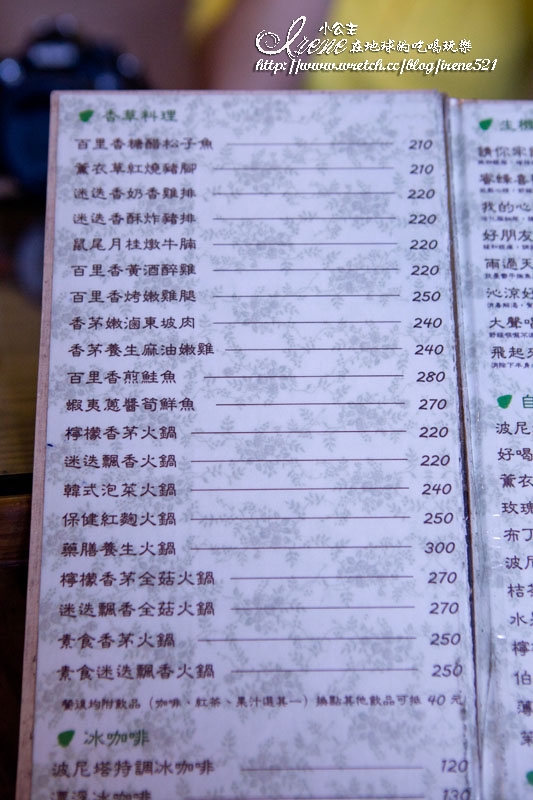 小公主
Irene 在地球的吃喝玩樂
http://www.wretch.cc/blog/irene521
香草料理
百里香糖醋松子魚 210
薰衣草紅燒豬腳 210
迷迭香奶香雞排 220
迷迭香酥炸豬排 220
鼠尾月桂燉牛腩 220
百里香黃酒醉雞 220
百里香烤嫩雞腿 250
香茅嫩滷東坡肉 240
香茅養生麻油嫩雞 240
百里香煎鮭魚 280
蝦夷蔥醬筍鮮魚 270
檸檬香茅火鍋 220
迷迭飄香火鍋 220
韓式泡菜火鍋 240
保健紅麴火鍋 250
藥膳養生火鍋 300
檸檬香茅全菇火鍋 270
迷迭飄香全菇火鍋 270
素食香茅火鍋 250
素食迷迭飄香火鍋 250
餐後均附飲品（咖啡、紅茶、果汁選其一）換點其他飲品可抵 40 元
冰咖啡
波尼塔特調冰咖啡 120
漂浮冰咖啡 130
生機
請你
蜜蜂喜
我的心
好朋友
雨過天
沁涼好
大聲唱
飛起來
自
波尼
好喝
薰衣
玫瑰
布丁
波尼
桔茶
水果
檸
伯
薄